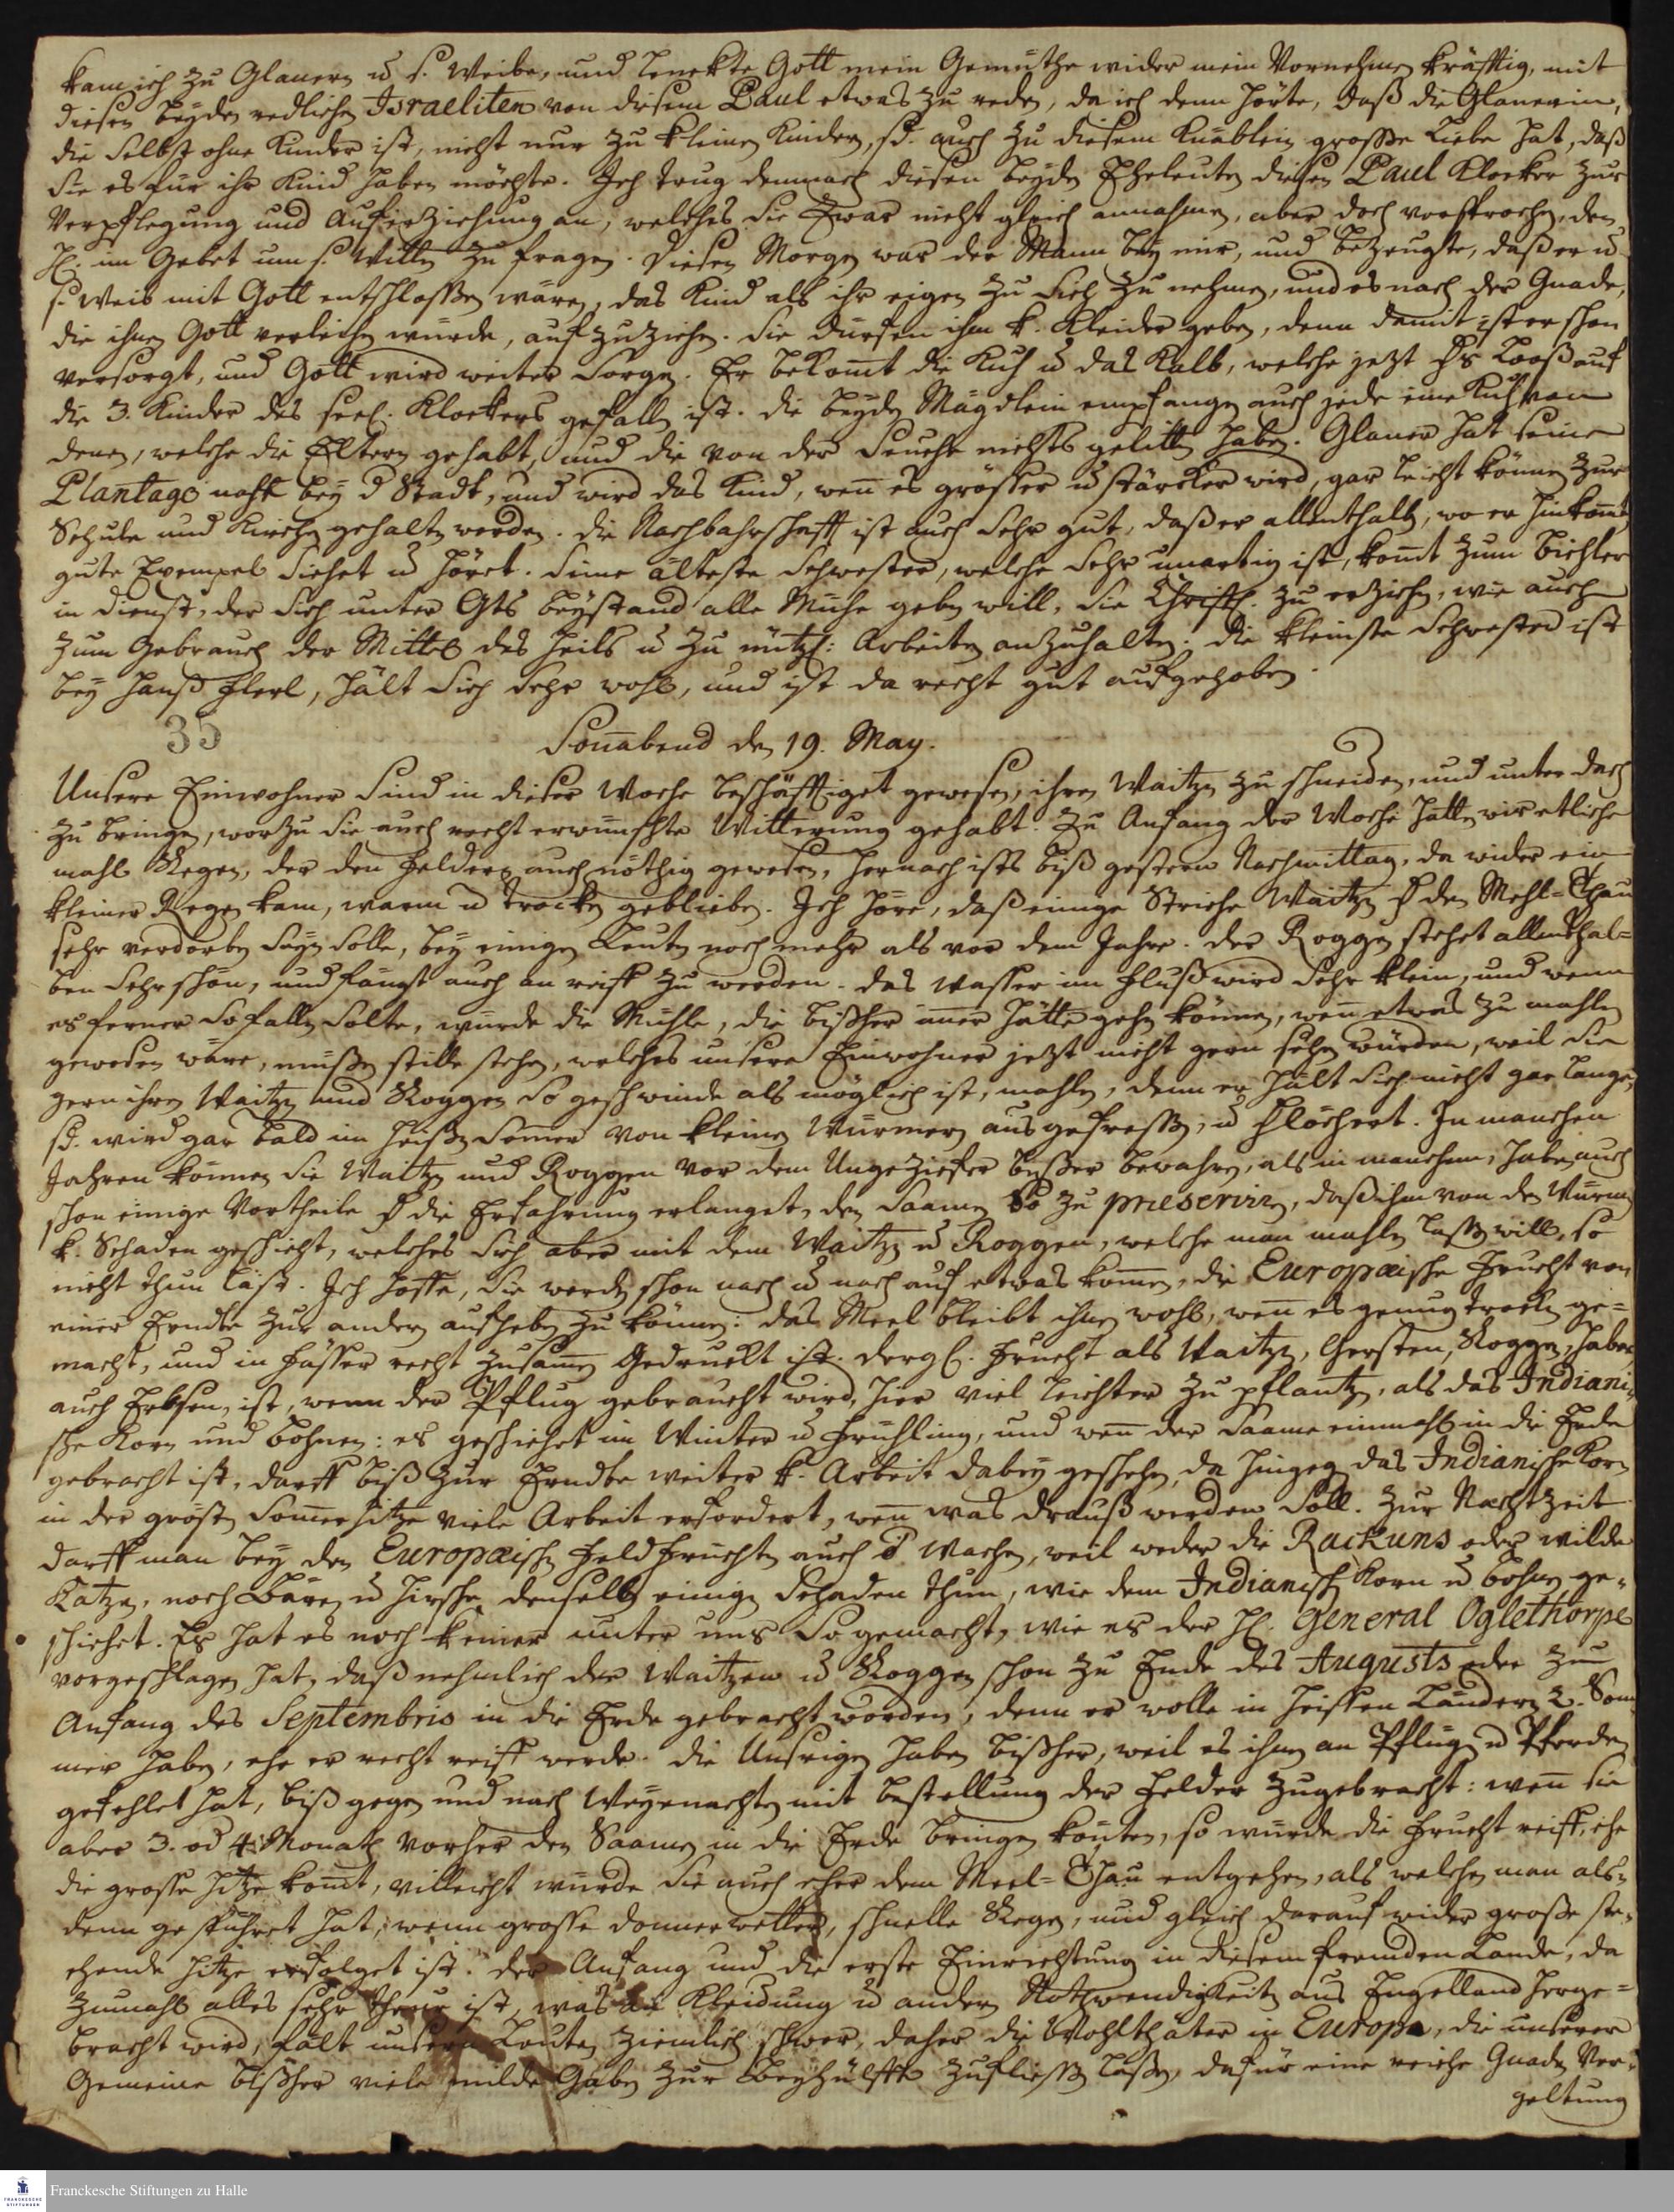 kam ich zu Glanern u. s. Weibe, und lenckte Gott mein Gemüthe wider mein Vornehmen kräfftig, mit
diesen beyden redlichen Israeliten von diesem Paul etwas zu reden, da ich denn hörte, daß die Glanerin,
die selbst ohne Kinder ist, nicht nur zu kleinen Kindern, sd. auch zu diesem Knäblein grosse Liebe hat, daß
sie es für ihr Kind haben möchte. Ich trug demnach diesen beyden Eheleuten diesen Paul Klocker zur
Verpflegung und Auferziehung an, welches sie zwar nicht gleich annahmen, aber doch versprochen, den
H. im Gebet um s. Willen zu fragen. Diesen Morgen war der Mann bey mir, und bezeugte, daß er u.
s. Weib mit Gott entschlossen wären, das Kind als ihr eigen zu sich zu nehmen, und es nach der Gnade,
die ihnen Gott verleihen würde, aufzuziehen. Sie dürfen ihm k. Kleider geben, denn damit ist er schon
versorgt, und Gott wird weiter sorgen. Er bekomt die Kuh u. das Kalb, welche jetzt Looß auf
die 3. Kinder des seel. Klockers gefallen ist. Die beyden Mägdlein empfangen auch jede eine Kuh von
denen, welche die Eltern gehabt, und die von der Seuche nichts gelitten haben. Glaner hat seine
Plantage nahe bey d Stadt, und wird das Kind, wen es grösser u. stärcker wird, gar leicht können zur
Schule und Kirchen gehalten werden. Die Nachbahrschafft ist auch sehr gut, daß er allenthalben, wo er hinkomt
gute Exempel siehet u. höret. Seine älteste Schwester, welche sehr unartig ist, komt zum Bichler
in Dienst, der sich unter Gts Beystand alle Mühe geben will, sie Christl. zu erziehen, wie auch
zum Gebrauch der Mittel des Heils u. zu nützl: Arbeiten anzuhalten. Die kleinste Schwester ist
bey Hanß Flerl, hält sich sehr wohl, und ist da recht gut aufgehoben.
35
Sonabend den 19. May.
Unsere Einwohner sind in dieser Woche beschäfftiget gewesen, ihren Waitzen zu schneiden, und unter Dach
zu bringen, worzu sie auch recht erwünschte Witterung gehabt. Zu Anfang der Woche hatten wir etliche
mahl Regen, der den Feldern auch nöthig gewesen, hernach ists biß gestern Nachmittag, da wider ein
kleiner Regen kam, warm u. trocken geblieben. Ich höre, daß einige Striche Waitzen den Mehl-Thau
sehr verdorben seyn solle, bey einigen Leuten noch mehr als vor dem Jahre. Der Roggen stehet allenthal=
ben sehr schön, und fängt auch an reiff zu werden. Das Wasser im Fluß wird sehr klein, und wenn
es ferner so fallen solte, würde die Mühle, die bißher imer hätte gehen können, wen etwas zu mahlen
gewesen wäre, müssen stille stehen, welches unsere Einwohner jetzt nicht gern sehen würden, weil sie
gern ihren Waitzen und Roggen so geschwinde als möglich ist, mahlen, denn er hält sich nicht gar lange,
sd. wird gar bald im heissen Somer von kleinen Würmern ausgefressen, u. löchert. In manchen
Jahren können sie Waitzen und Roggen vor dem Ungeziefer besser bewahren, als in manchem, haben auch
schon einige Vortheile die Erfahrung erlanget, den Saamen so zu præserviren, daß ihm von den Würmern
k. Schaden geschieht, welches sich aber mit dem Waitzen u. Roggen, welche man mahlen lassen will, so
nicht thun läst. Ich hoffe, sie werden schon nach u. nach auf etwas komen, die Europæische Frucht von
einer Erndte zur andern aufheben zu können: das Meel bleibt ihnen wohl, wen es genug trocken ge=
macht, und in Fässer recht zusamen gedruckt ist. Dergl. Frucht als Waitzen, Gersten, Roggen, Haber,
auch Erbsen, ist, wenn der Pflug gebraucht wird, hier viel leichter zu pflantzen, als das Indiani=
sche Korn und Bohnen: es geschiehet im Winter u. Frühling, und wen der Saame einmahl in die Erde
gebracht ist, darff biß zur Erndte weiter k. Arbeit dabey geschehen, da hingegen das Indianische Korn
in der grösten Somerhitze viele Arbeit erfordert, wen was drauß werden soll. Zur Nachtzeit
darff man bey den Europæischen Feldfrüchten auch wachen, weil weder die Rackuns oder wilde
Katzen, noch Bären u. Hirsche denselben einigen Schaden thun, wie dem Indianischen Korn u. Bohnen ge=
schiehet. Es hat es noch keiner unter uns so gemacht, wie es der H. General Oglethorpe
vorgeschlagen hat, daß nehmlich der Waitzen u. Roggen schon zu Ende des Augusts oder zu
Anfang des Septembris in die Erde gebracht worden, denn er wolle in heissen Ländern 2. Som=
mer haben, ehe er recht reiff werde. Die Unsrigen haben bißher, weil es ihnen an Pflügen u. Pferden
gefehlet hat, biß gegen und nach Weynachten mit Bestellung der Felder zugebracht: wen sie
aber 3. od 4. Monath vorher den Saamen in die Erde bringen könten, so würde die Frucht reiff, ehe
die grosse Hitze komt, villeicht würde sie auch eher dem Meel-Thau entgehen, als welchen man als=
denn gespühret hat, wenn grosse Donnerwetter, schnelle Regen, und gleich darauf wider große ste=
chende Hitze erfolget ist. Der Anfang und die erste Einrichtung in diesem fremden Lande, da
zumahl alles sehr theur ist, was an Kleidung u. andern Nothwendigkeiten aus Engelland herge=
bracht wird, fält unsern Leuten ziemlich schwer, daher die Wohlthäter in Europa, die unserer
Gemeine bißher viele milde Gaben zur Beyhülffe zufliessen lassen, dafür eine reiche Gnaden Ver=
geltung
Franckesche Stiftungen zu Halle